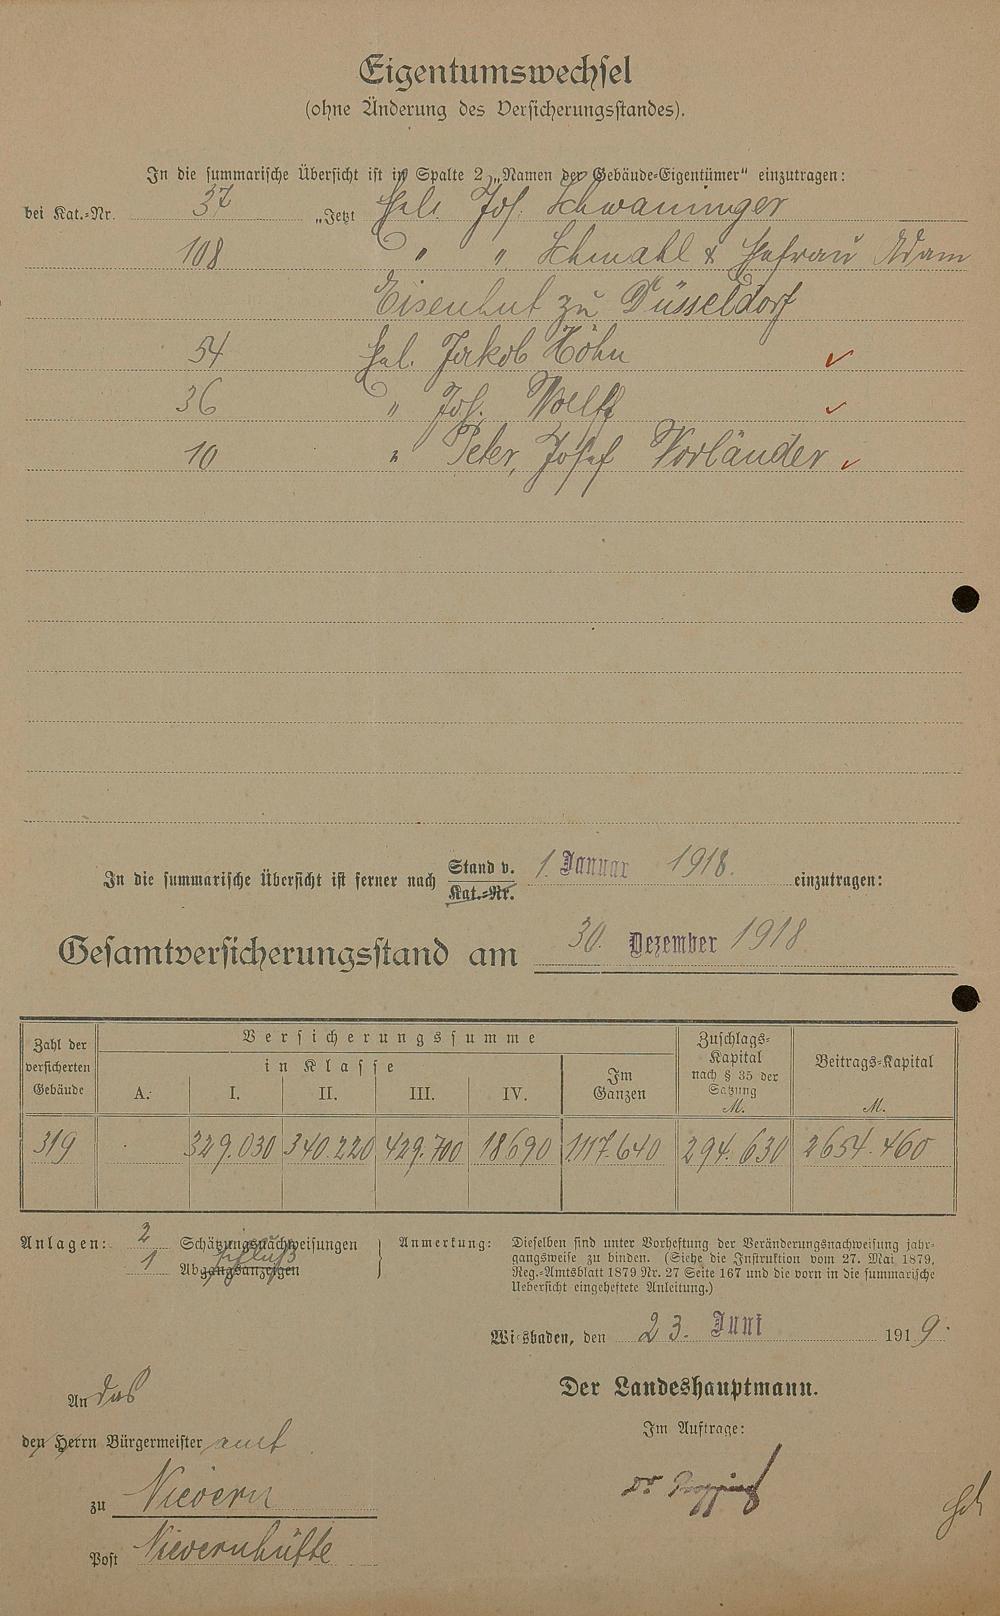 Eigentumswechsel
(ohne Änderung des Versicherungsstandes).
In die summarische Übersicht ist in Spalte 2 „Namen der Gebäude-Eigentümer“ einzutragen:
bei Kat.-Nr. 37 „Jetzt Jos. Schwaninger
108 " " Schmahl & Ehefrau Adam
Eisenhut zu Düsseldorf
54 Jakob Höhn
36 " Jos. Wolff
10 " Peter, Josef Vorländer
In die summarische Übersicht ist ferner nach Stand v. 1. Januar 1918. einzutragen:
Kat.-Nr.
Gesamtversicherungsstand am 30. Dezember 1918
Zahl der versicherten Gebäude
Versicherungssumme
in Klasse
A. I. II. III. IV.
Im Ganzen
Zuschlags-Kapital nach § 35 der Satzung M.
Beitrags-Kapital M.
319 . 329.030 340.220 429.700 18690 1117.640 294.630 2654.460
Anlagen: 2 Schätzungsnachweisungen
1 Abgangsanzeigen
Anmerkung: Dieselben sind unter Vorheftung der Veränderungsnachweisung jahr-
gangsweise zu binden. (Siehe die Instruktion vom 27. Mai 1879,
Reg.-Amtsblatt 1879 Nr. 27 Seite 167 und die vorn in die summarische
Uebersicht eingeheftete Anleitung.)
Wiesbaden, den 23. Juni 1919.
Der Landeshauptmann.
Im Auftrage:
An das
den Herrn Bürgermeister amt
zu Nievern
Post Nievernhütte